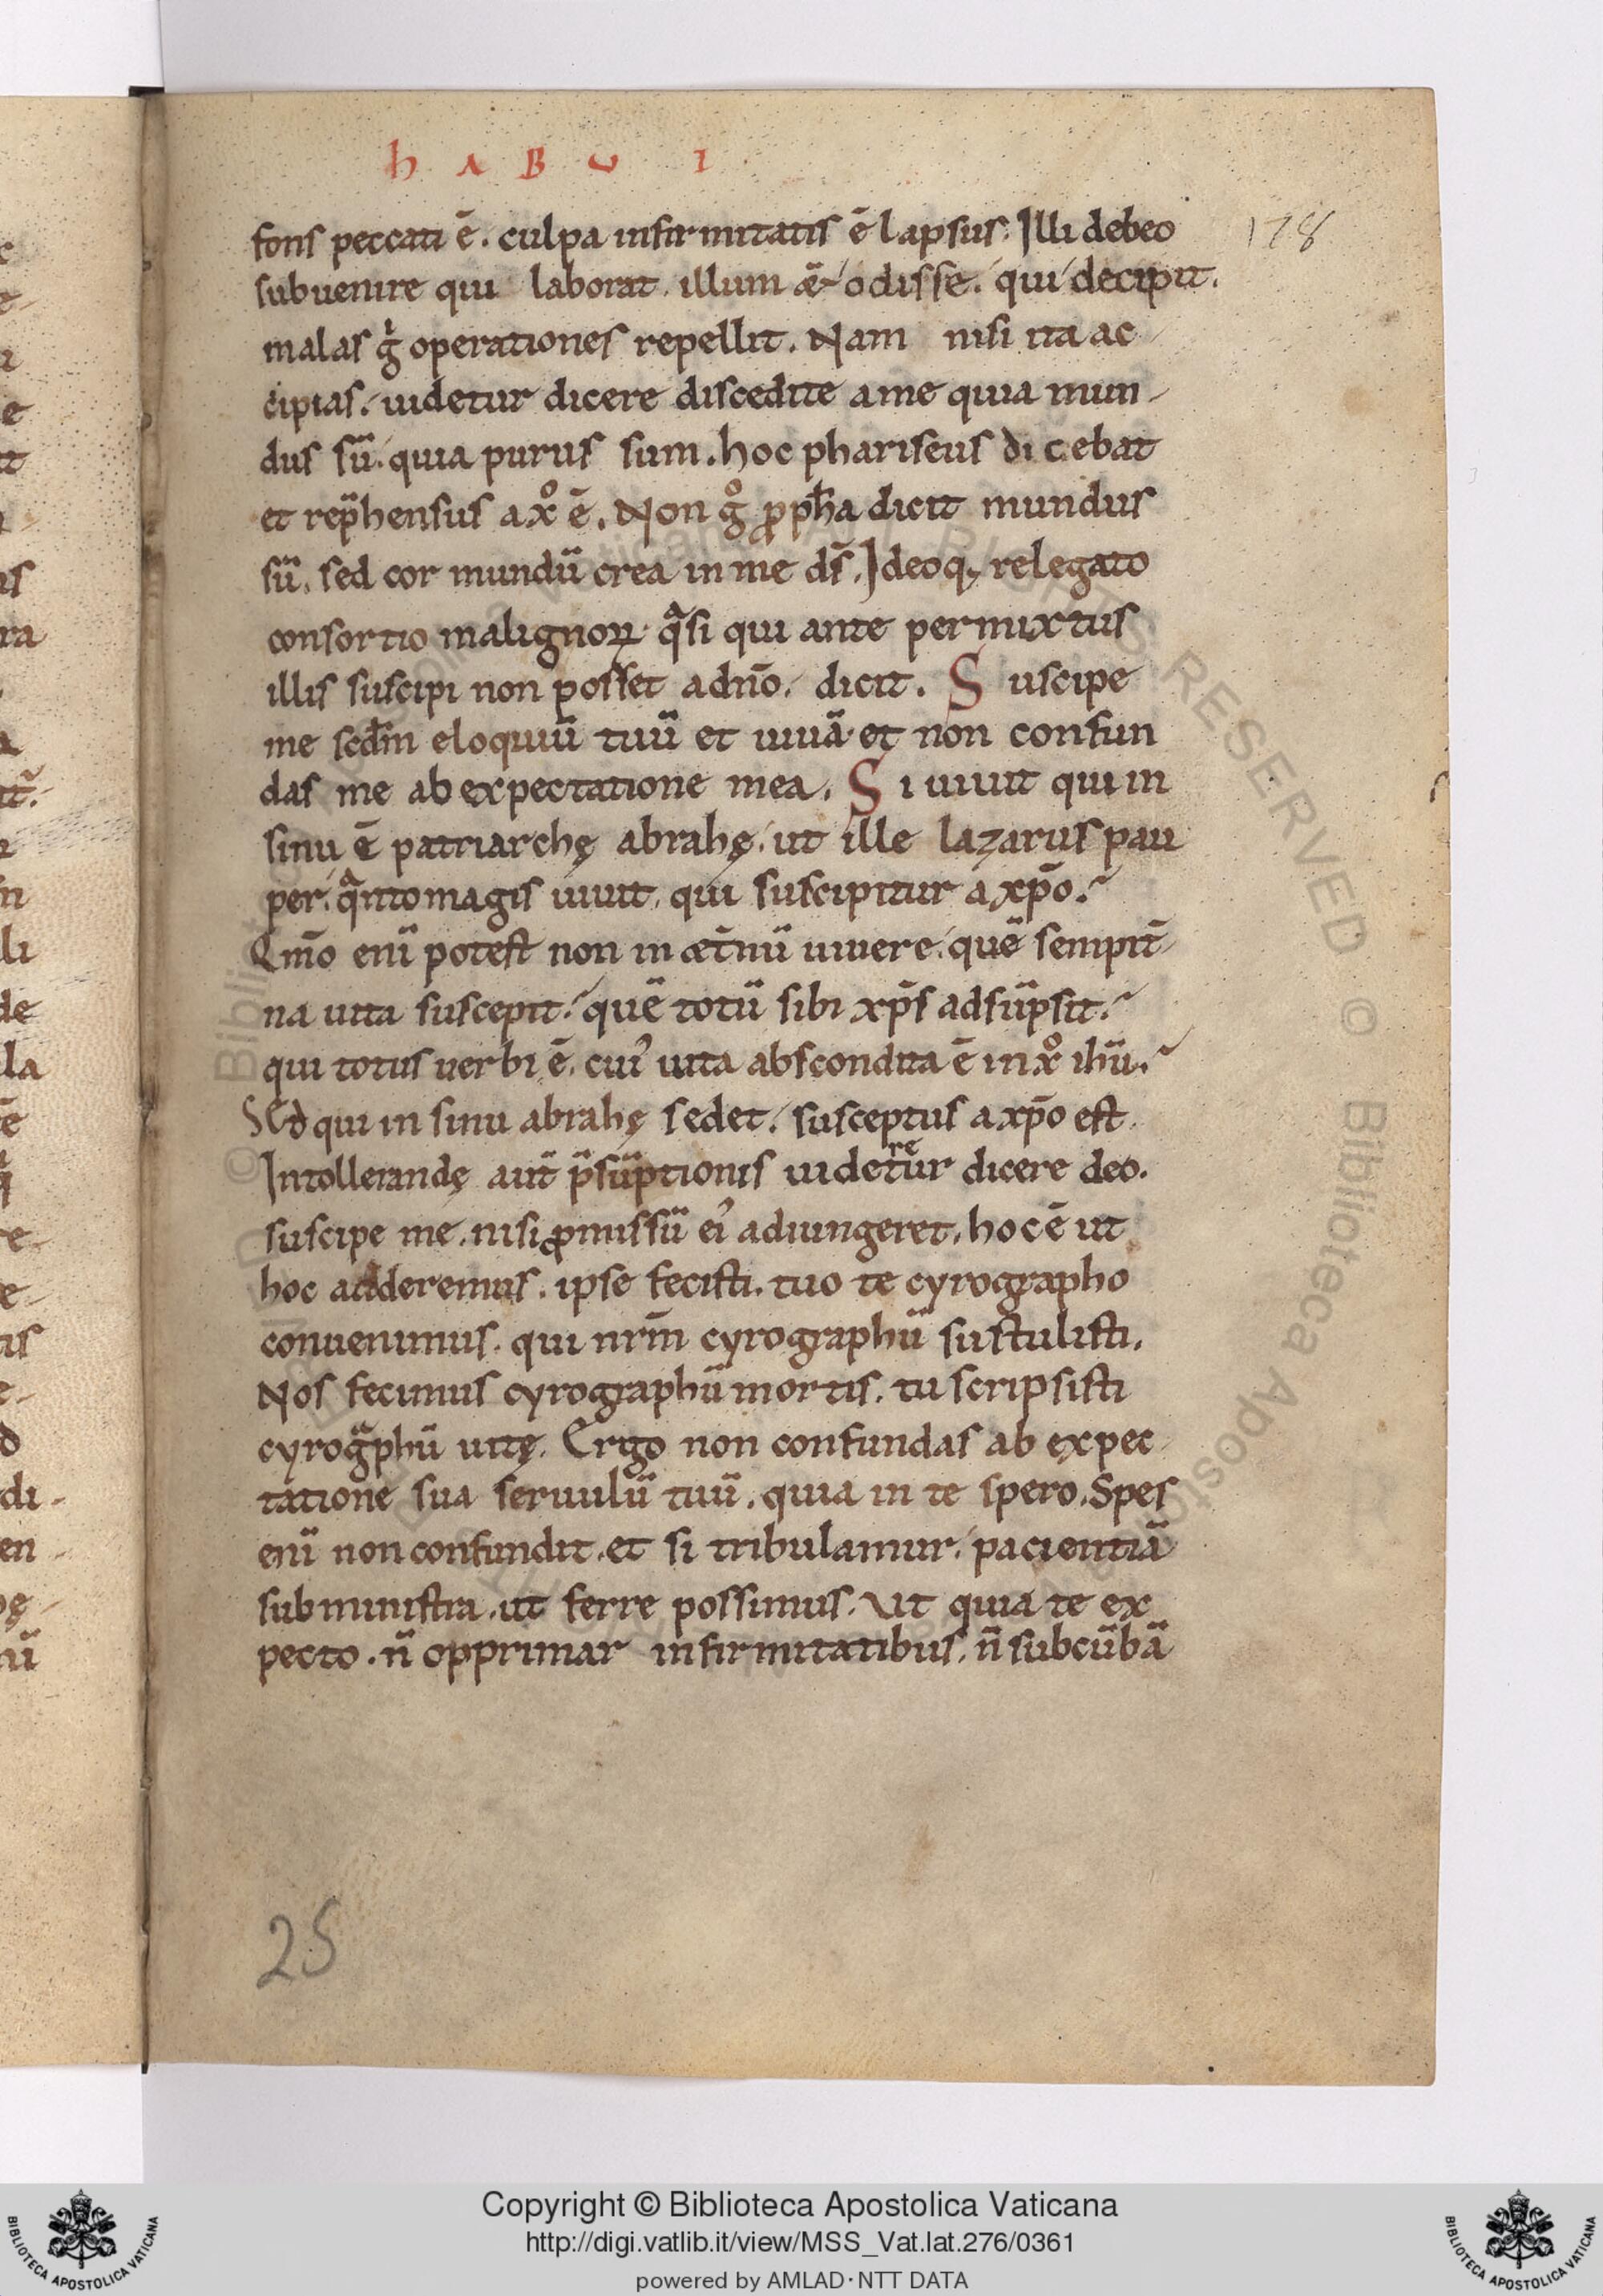 h A B U I
178
fons peccati ē. culpa infirmitatis ē lapsus. Illi debeo
subuenire qui laborat. illum æ̃ odisse. qui decipit.
malas g̾ operationes repellit. Nam nisi ita ac
cipias. uidetur dicere discedite a me quia mun-
dus sū. quia purus sum. hoc phariseus dicebat
et rep̄hensus a xº ē. Non gº ꝓph̄a dicit mundus
sū. sed cor mundū crea in me ds̄. Ideoq; relegato
consortio malignoꝝ qͣsi qui ante permixtus
illis suscipi non posset adnō. dicit. Suscipe
me sedm̄ eloquiū tuū et uiuā et non confun
das me ab expectatione mea. Si uiuit qui in
sinu ē patriarchę abrahę. ut ille lazarus pau
per. qͣnto magis uiuit. qui suscipitur a xp̄o.
Qm̄o enī potest non in æt̄nū uiuere. quē sempit̄
na uita suscepit. quē totū sibi xp̄s adsūpsit.
qui totus uerbi ē. cui᾽ uita abscondita ē in xº ihū.
Sed qui in sinu abrahę sedet. susceptus a xp̄o est.
Intollerandę aut̄ p̄sūptionis uidetur dicere deo.
rę
suscipe me. nisi ꝓmissū ei᾽ adiungeret. hoc ē ut
hoc adderemus. ipse fecisti. tuo te cyrographo
conuenimus. qui nrm̄ cyrographū sustulisti.
Nos fecimus cyrographū mortis. tu scripsisti
cyrogͣphū uitę. Ergo non confundas ab expec
tatione sua seruulū tuū. quia in te spero. Spes
enī non confundit. et si tribulamur. pacientiā
subministra. ut ferre possimus. Ut quia te ex
pecto. n̄ opprimar infirmitatibus. n̄ subcūbā
25
Copyright © Biblioteca Apostolica Vaticana
http://digi.vatlib.it/view/MSS_Vat.lat.276/0361
powered by AMLAD·NTT DATA
BIBLIOTECA APOSTOLICA VATICANA
BIBLIOTECA APOSTOLICA VATICANA